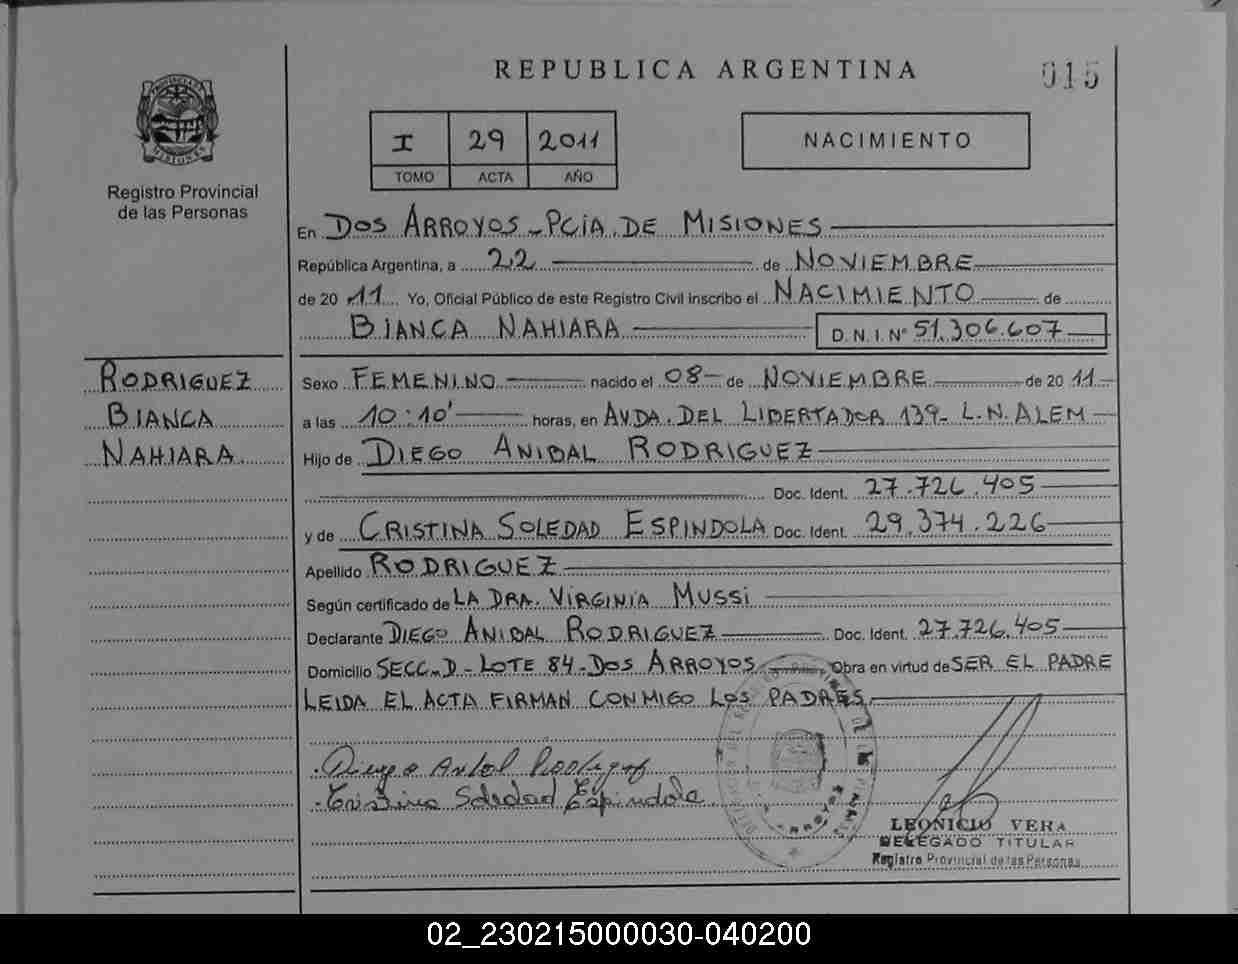 REPUBLICA ARGENTINA
015
PROVINCIA DE
MISIONES
Registro Provincial
de las Personas
I 29 2011
TOMO ACTA AÑO
NACIMIENTO
En DOS ARROYOS - PCIA. DE MISIONES
República Argentina, a 22 de NOVIEMBRE
de 20 11 Yo, Oficial Público de este Registro Civil inscribo el NACIMIENTO de
BIANCA NAHIARA D.N.I. Nº 51.306.607
RODRIGUEZ
BIANCA
NAHIARA
Sexo FEMENINO nacido el 08 de NOVIEMBRE de 20 11
a las 10:10' horas, en AVDA. DEL LIBERTADOR 139 - L.N. ALEM
Hijo de DIEGO ANIBAL RODRIGUEZ
Doc. Ident. 27.726.405
y de CRISTINA SOLEDAD ESPINDOLA Doc. Ident. 29.374.226
Apellido RODRIGUEZ
Según certificado de LA DRA. VIRGINIA MUSSI
Declarante DIEGO ANIBAL RODRIGUEZ Doc. Ident. 27.726.405
Domicilio SECC. D - LOTE 84 - DOS ARROYOS Obra en virtud de SER EL PADRE
LEIDA EL ACTA FIRMAN CONMIGO LOS PADRES
Cristina Soledad Espindola
LEONICIO VERA
DELEGADO TITULAR
Registro Provincial de las Personas
02_230215000030-040200